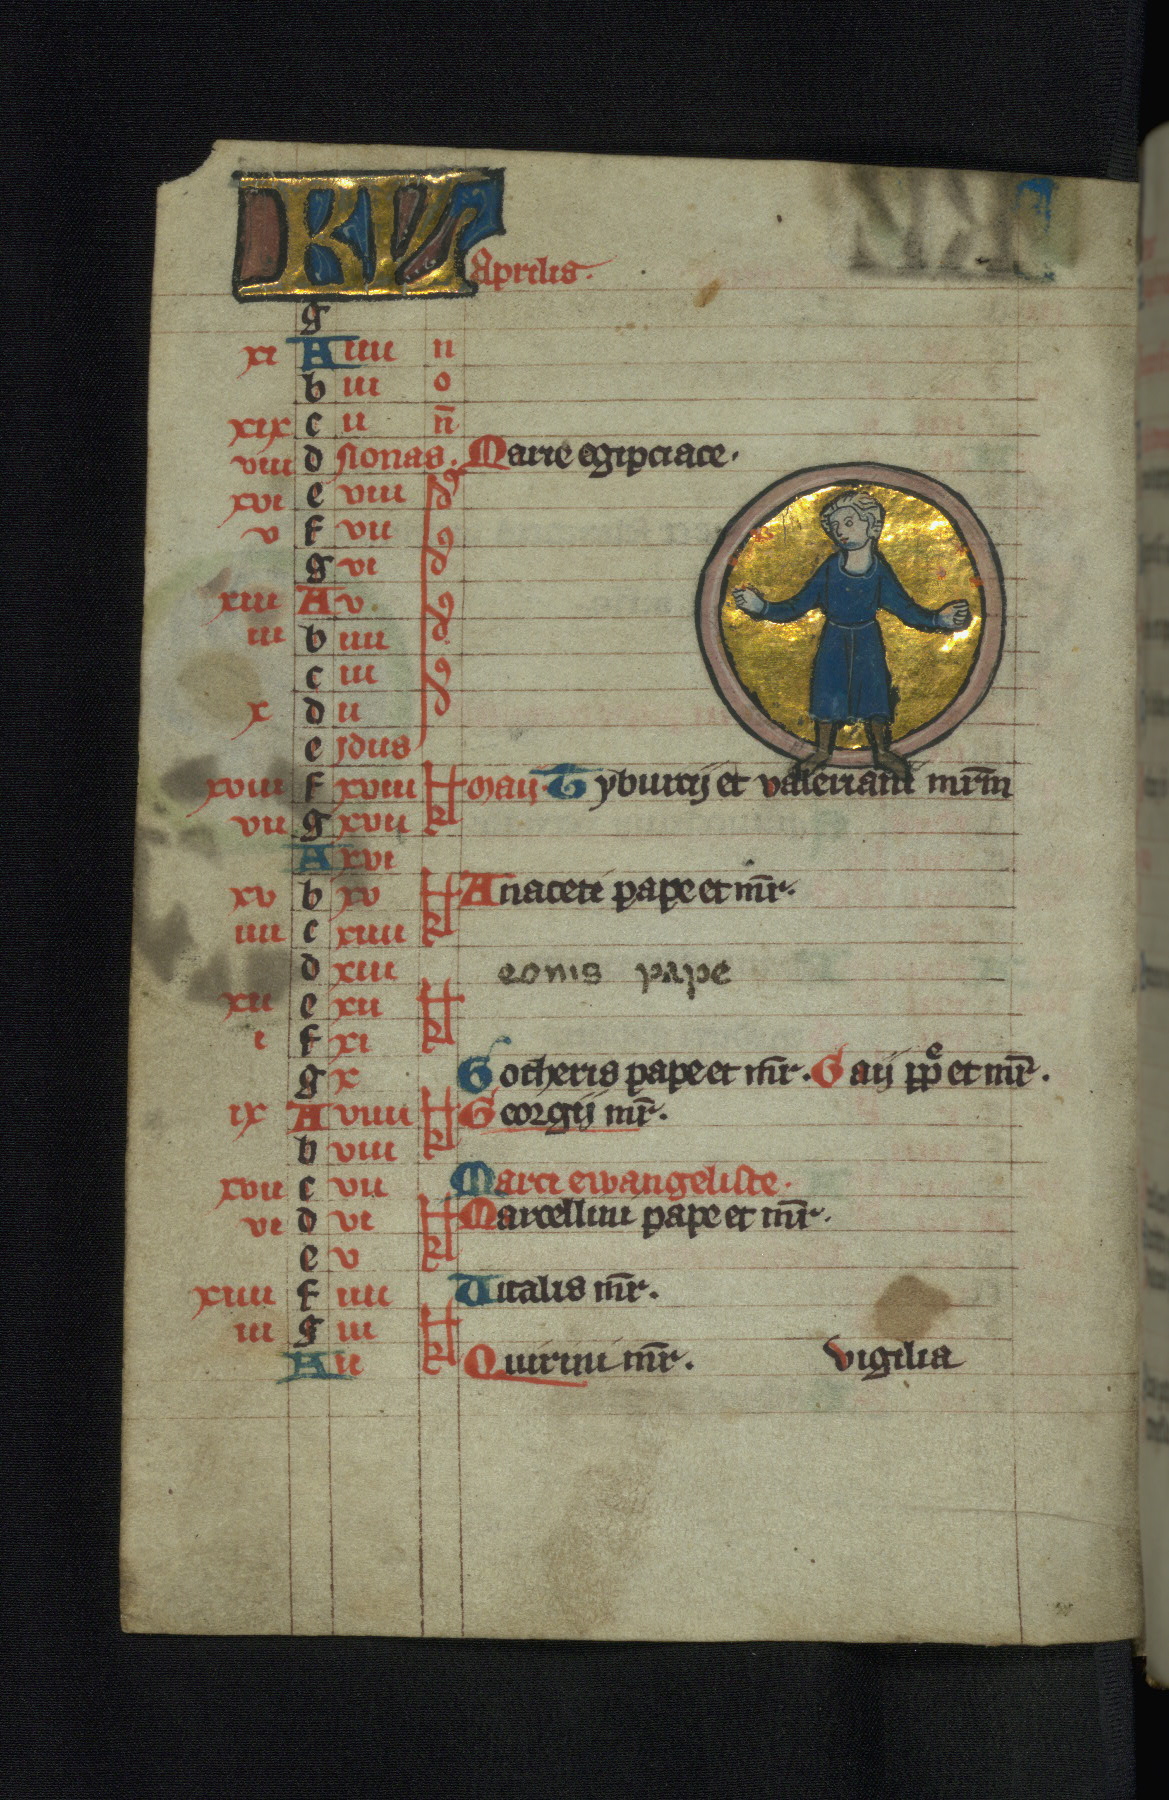 KL Aprilis.
g
xi A iiii n
b iii o
xix c ii n̄
viii d Nonas. Marie egipciace.
xvi e viii
v f vii
g vi
xiii A v
iii b iiii
c iii
x d ii
e Idus
xviii f xviii kl maii Tyburcij et valeriani mr̄m
vii g xvii
A xvi
xv b xv Anaceti pape et mr̄.
iiii c xiiii
d xiii eonis pape
xii e xii
i f xi
g x Gotheris pape et mr̄. Gaij ppͤ et mr̄.
ix A viiii Georgij mr̄.
b viii
xvii c vii Marci ewangeliste.
vi d vi Marcellini pape et mr̄.
e v
xiiii f iiii Vitalis mr̄.
iii g iii
A ii Quirini mr̄. vigilia